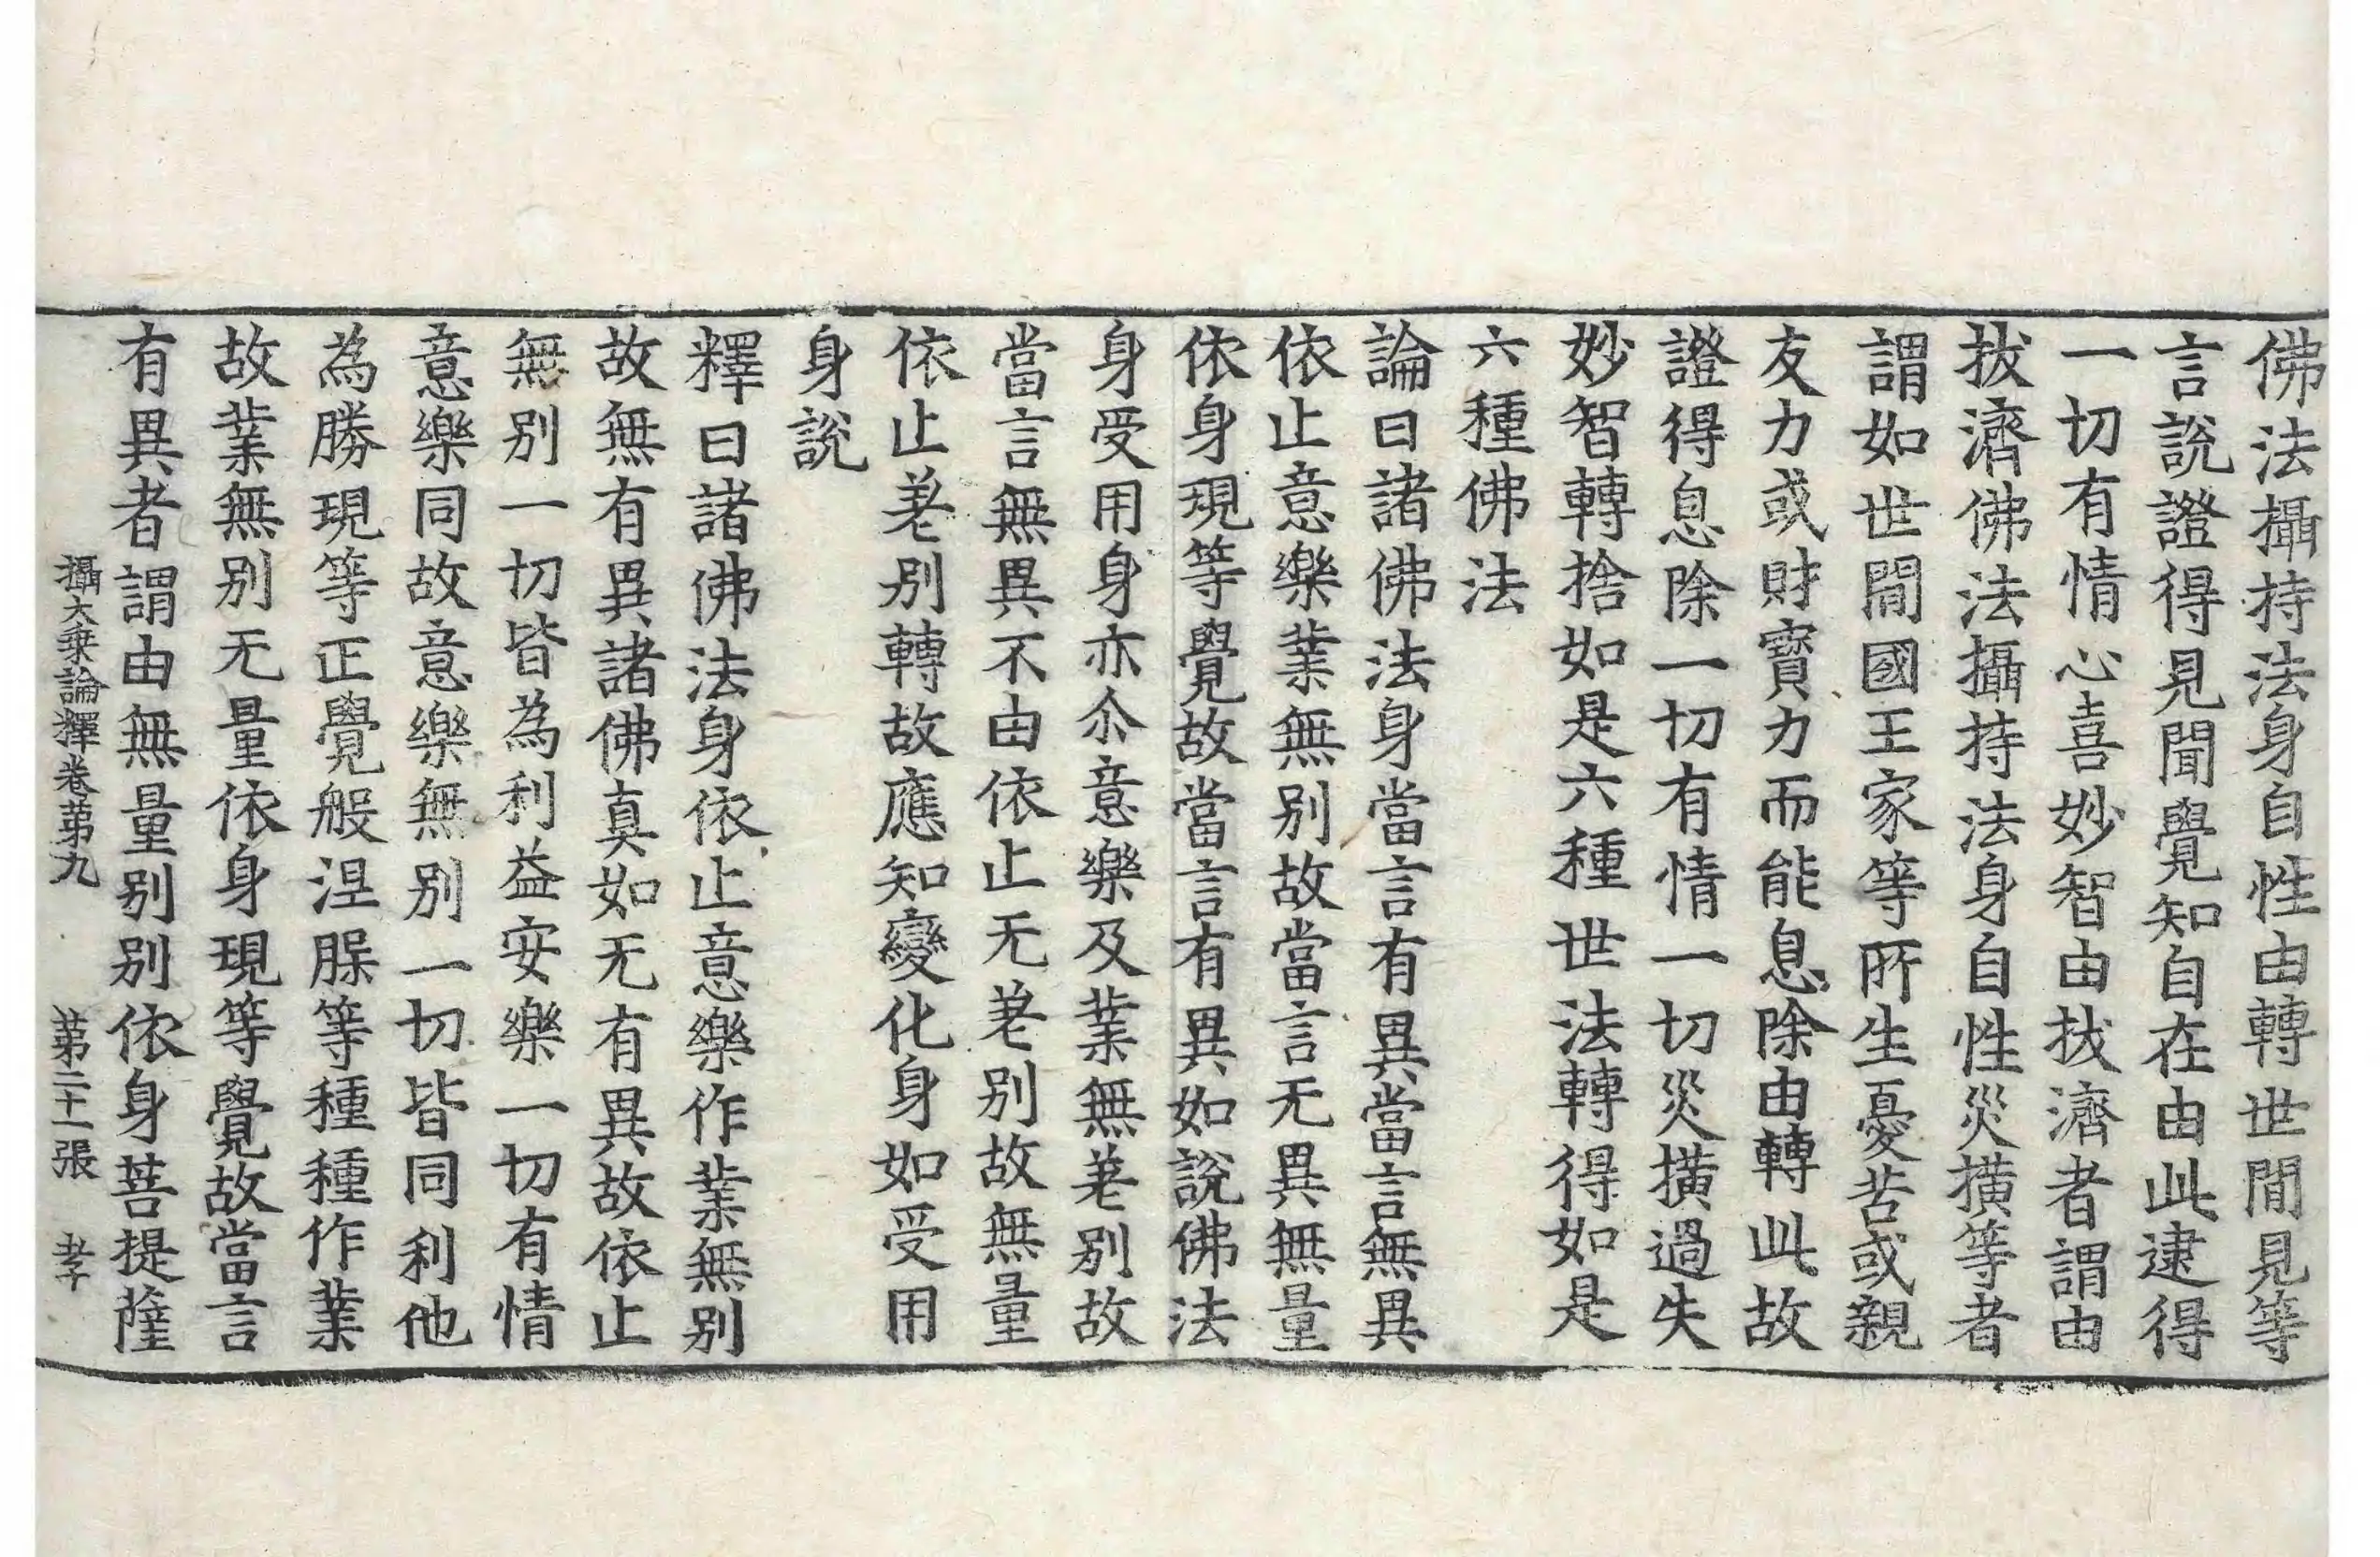 佛法攝持法身自性由轉世間見等
言說證得見聞覺知自在由此逮得
一切有情心喜妙智由拔濟者謂由
拔濟佛法攝持法身自性災橫等者
謂如世間國王家等所生憂苦或親
友力或財寶力而能息除由轉此故
證得息除一切有情一切災撗過失
妙智轉捨如是六種世法轉得如是
六種佛法
論曰諸佛法身當言有異當言無異
依止意樂業無別故當言无異無量
依身現等覺故當言有異如說佛法
身受用身亦尒意樂及業無差別故
當言無異不由依止无差別故無量
依止差別轉故應知變化身如受用
身說
釋曰諸佛法身依止意樂作業無别
故無有異諸佛真如无有異故依止
無别一切皆為利益安樂一切有情
意樂同故意樂無别一切皆同利他
為勝現等正覺般涅槃等種種作業
故業無别无量依身現等覺故當言
有異者謂由無量别别依身菩提薩
攝大乘論釋卷苐九 苐二十一張 孝